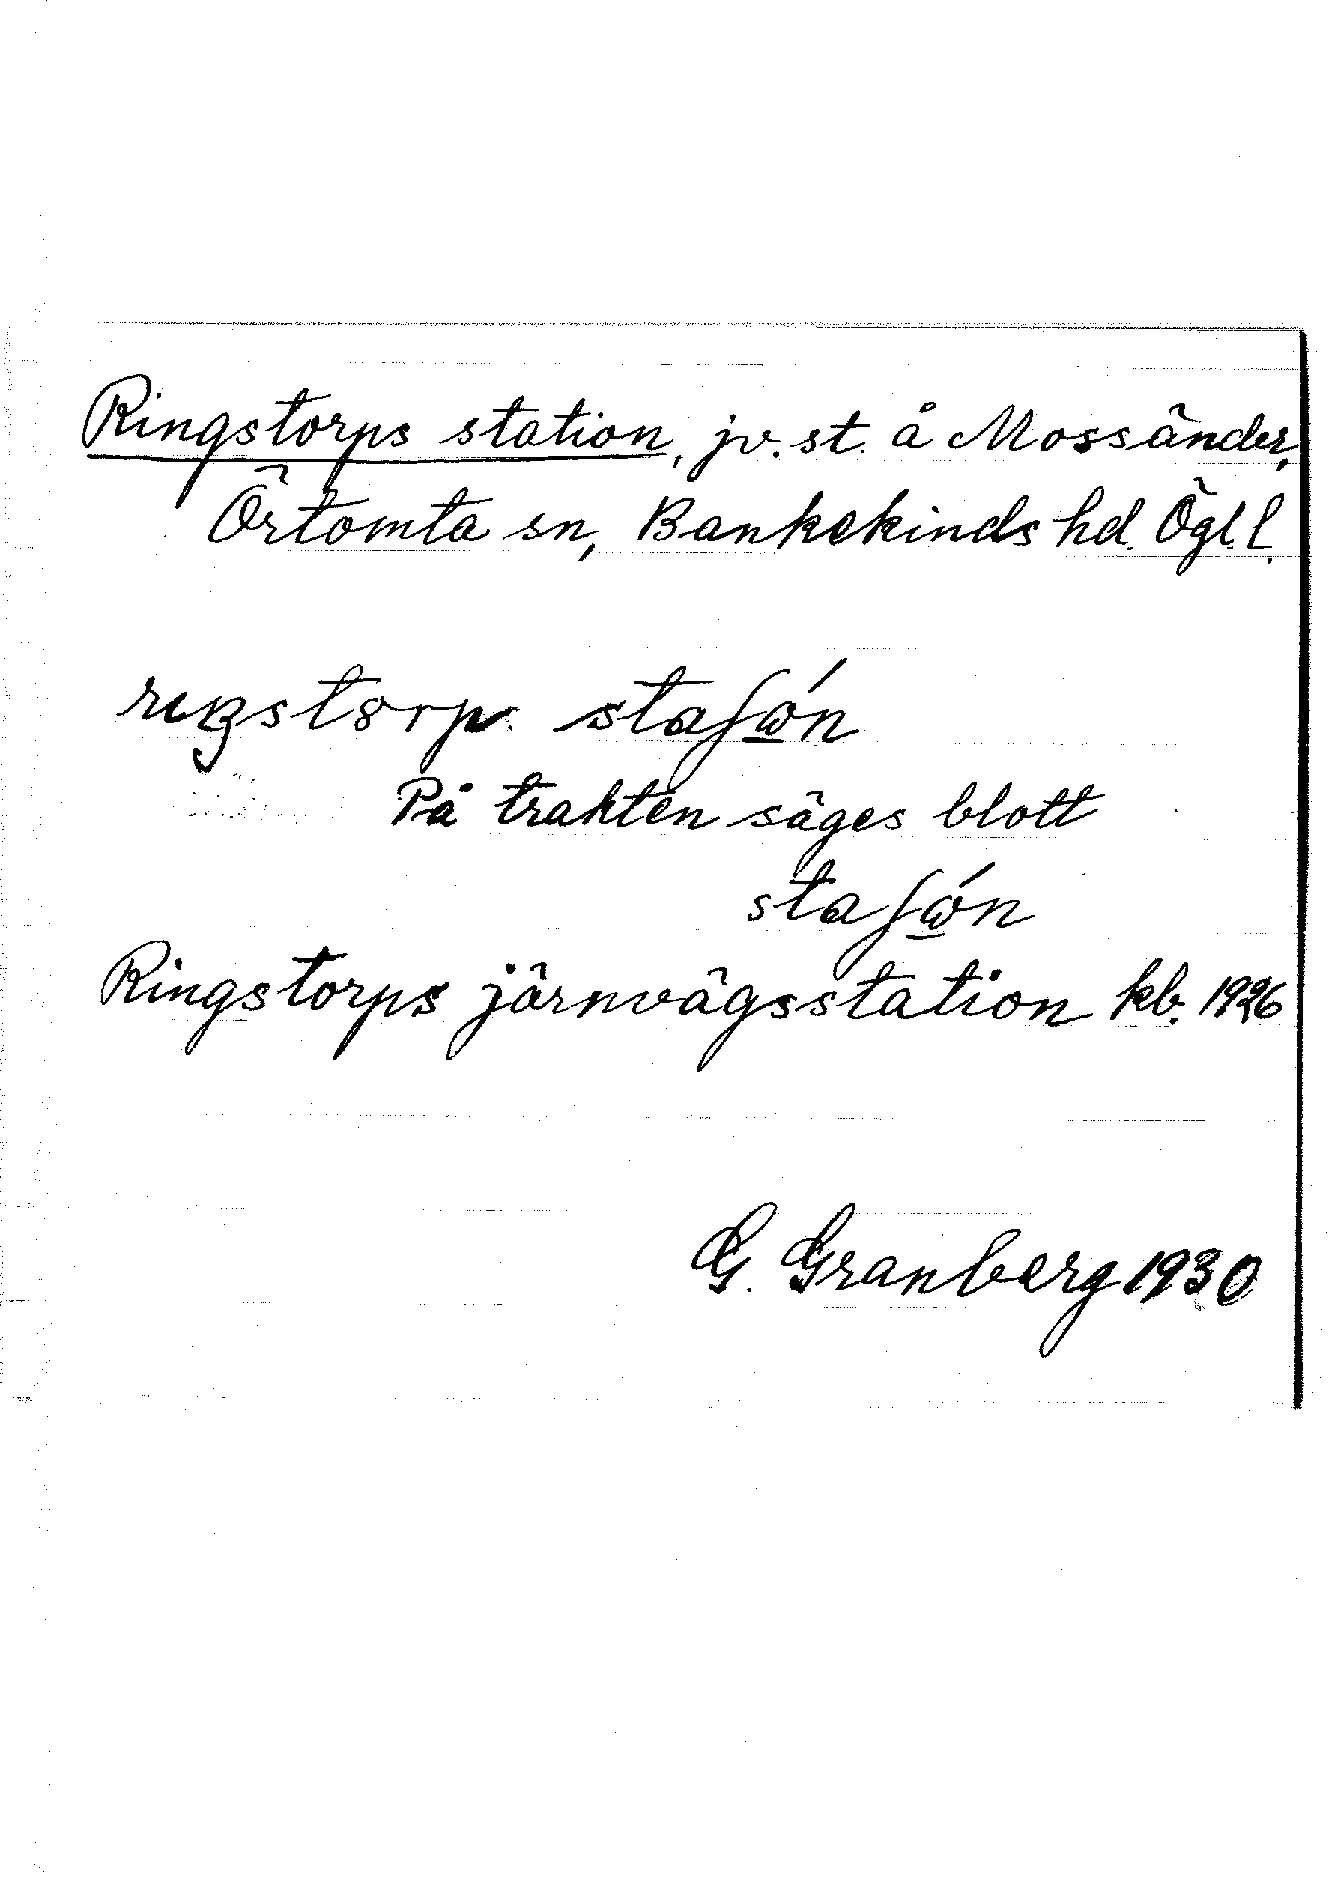 Ringstorps station, jv. st. å Mossänder,
Örtomta sn, Bankekinds hd. Ögl. l.
staʃώ̲n
På trakten säges blott
staʃώ̲n
Ringstorps järnvägsstation kb. 1926
G. Granberg 1930